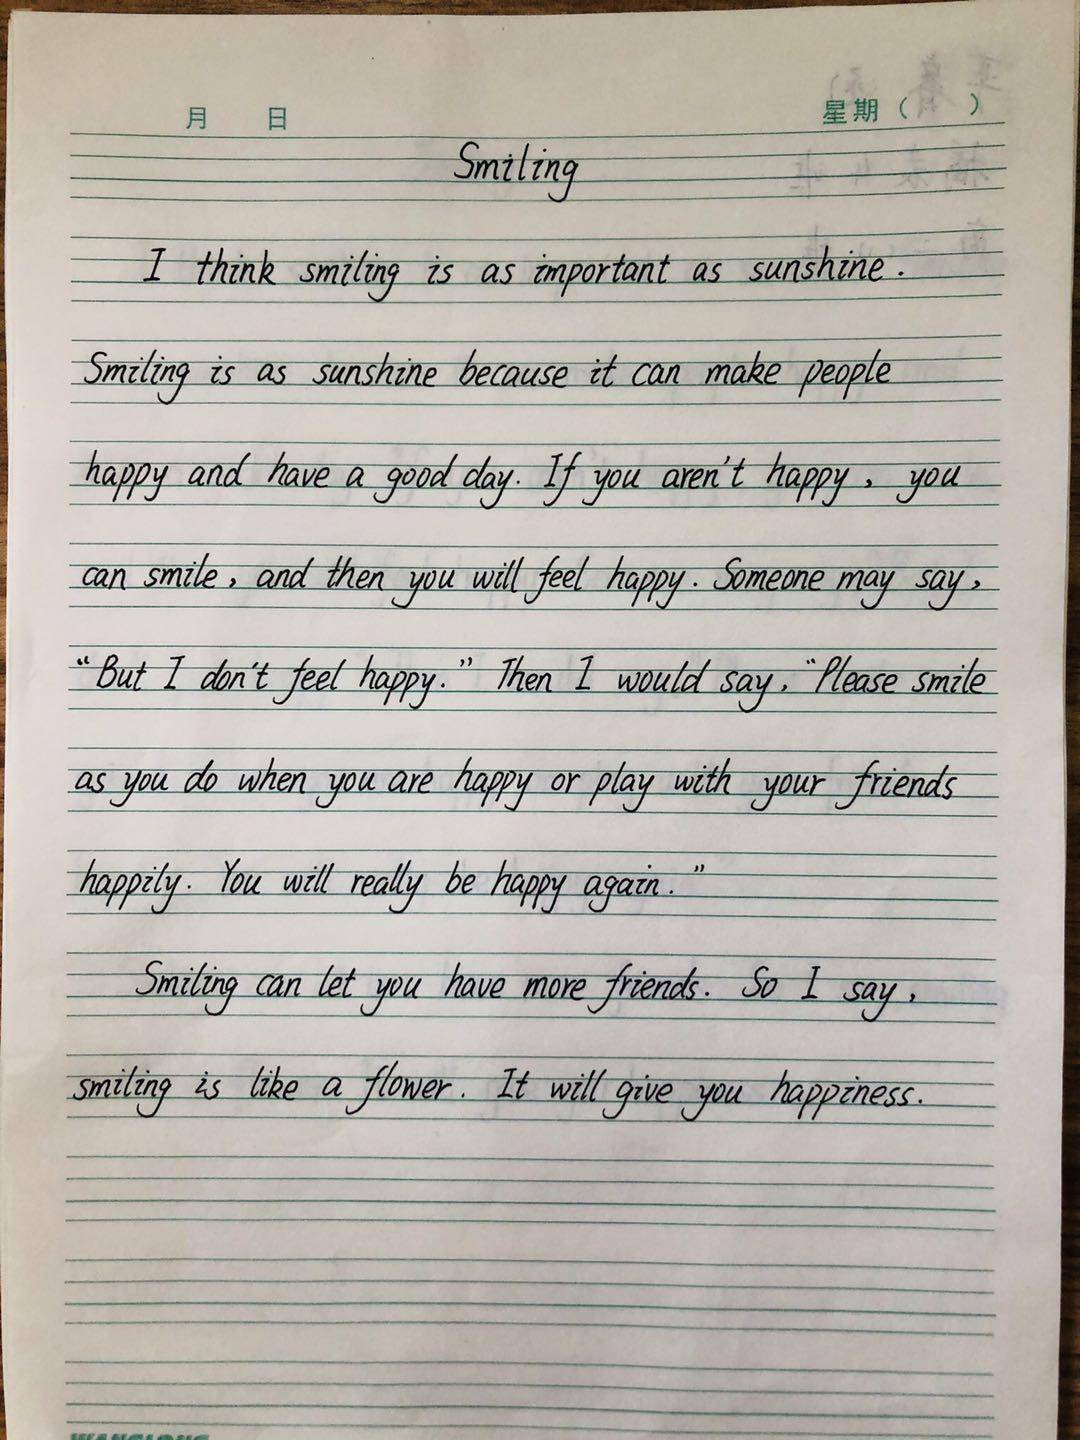 月 日 星期（ ）
Smiling
I think smiling is as important as sunshine.
Smiling is as sunshine because it can make people
happy and have a good day. If you aren't happy, you
can smile, and then you will feel happy. Someone may say,
"But I don't feel happy." Then I would say, "Please smile
as you do when you are happy or play with your friends
happily. You will really be happy again."
Smiling can let you have more friends. So I say,
smiling is like a flower. It will give you happiness.